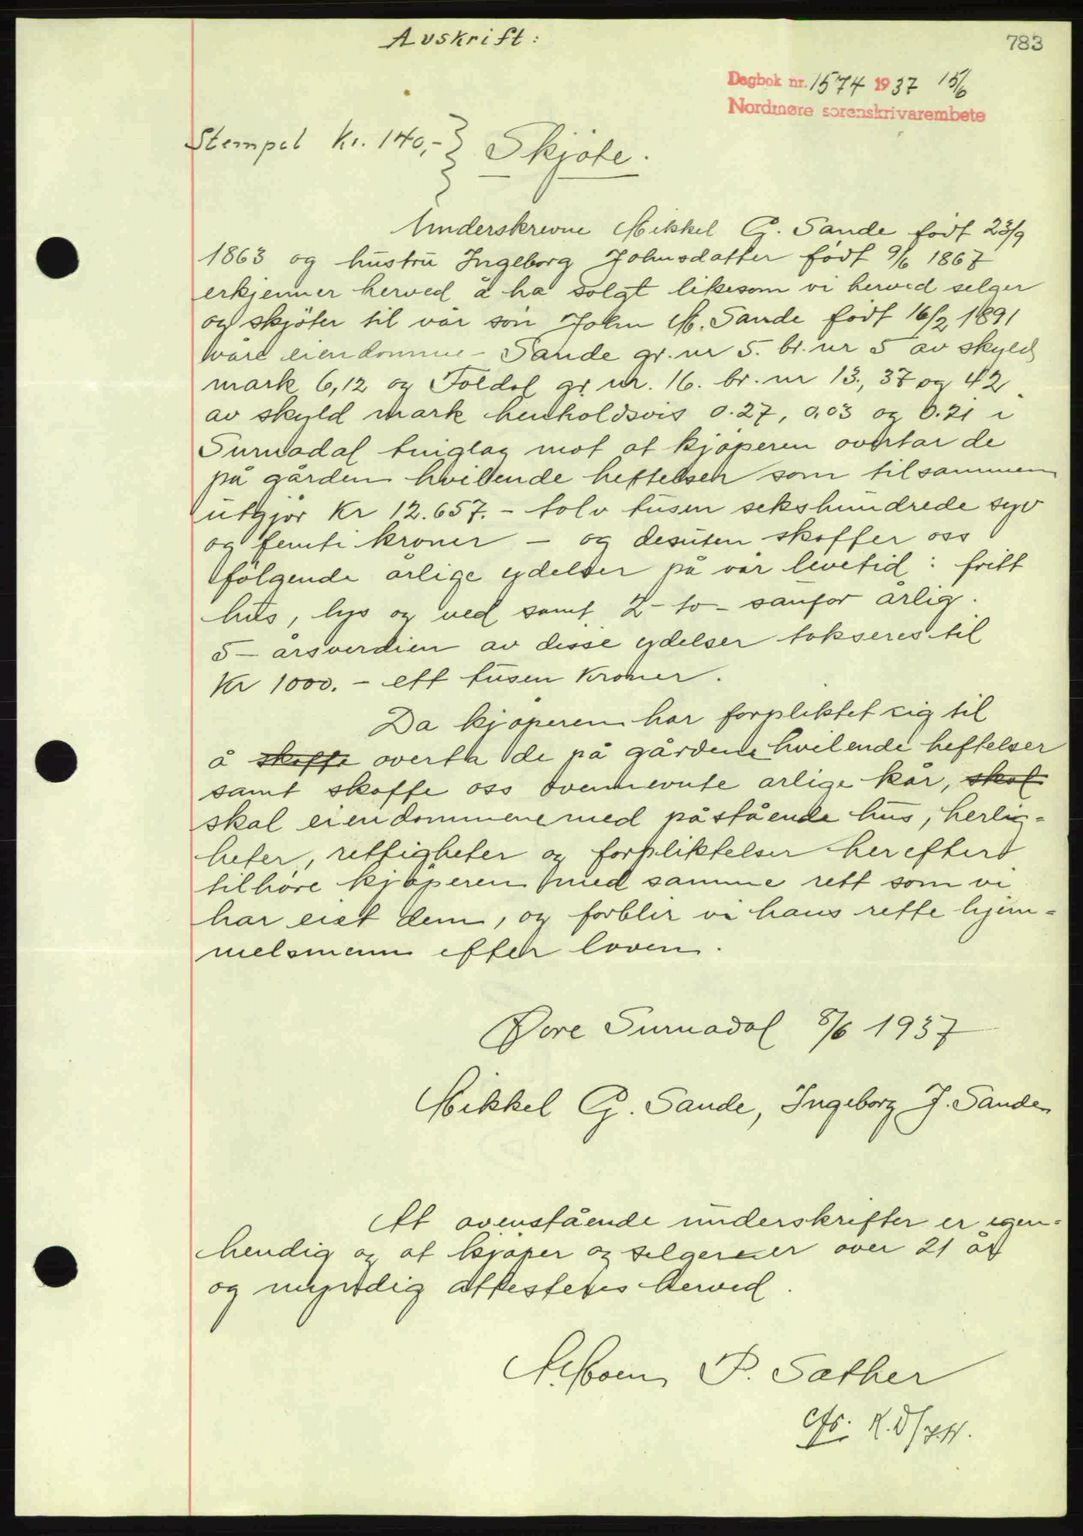 Avskrift:
783
Dagbok nr. 1574 1937 15/6
Nordmøre sorenskrivarembete
Stempel kr. 140,-} Skjøte.
Underskrevne Mikkel G. Sande født 23/9
1863 og hustru Ingeborg Johnsdatter født 9/6 1867
erkjenner herved å ha solgt likesom vi herved selger
og skjøter til vår søn John M. Sande født 16/2 1891
våre eiendomme - Sande gr. nr 5. br. nr 5 av skyld
mark 6,12 og Foldal gr. nr. 16. br. nr 13, 37 og 42
av skyld mark henholdsvis 0.27, 0,03 og 0.21 i
Surnadal tinglag mot at kjøperen overtar de
på gården hvilende heftelser som tilsammen
utgjør Kr 12.657. - tolv tusen sekshundrede syv
og femti kroner - og desuten skaffer oss
følgende årlige ydelser på vår levetid: fritt
hus, lys og ved samt 2 - to - saufor årlig.
5 - årsverdien av disse ydelser takseres til
Kr 1000. - ett tusen Kroner.
Da kjøperen har forpliktet sig til
å skaffe overta de på gårdene hvilende heftelser
samt skaffe oss ovennevnte årlige kår, skal
skal eiendommene med påstående hus, herlig=
heter, rettigheter og forpliktelser herefter
tilhøre kjøperen med samme rett som vi
har eiet dem, og forblir vi hans rette hjem=
melsmenn efter loven.
Øvre Surnadal 8/6 1937
Mikkel G. Sande, Ingeborg J. Sande
At ovenstående underskrifter er egen=
hendig og at kjøper og selgere er over 21 år
og myndig attesteres herved.
P. Sæther